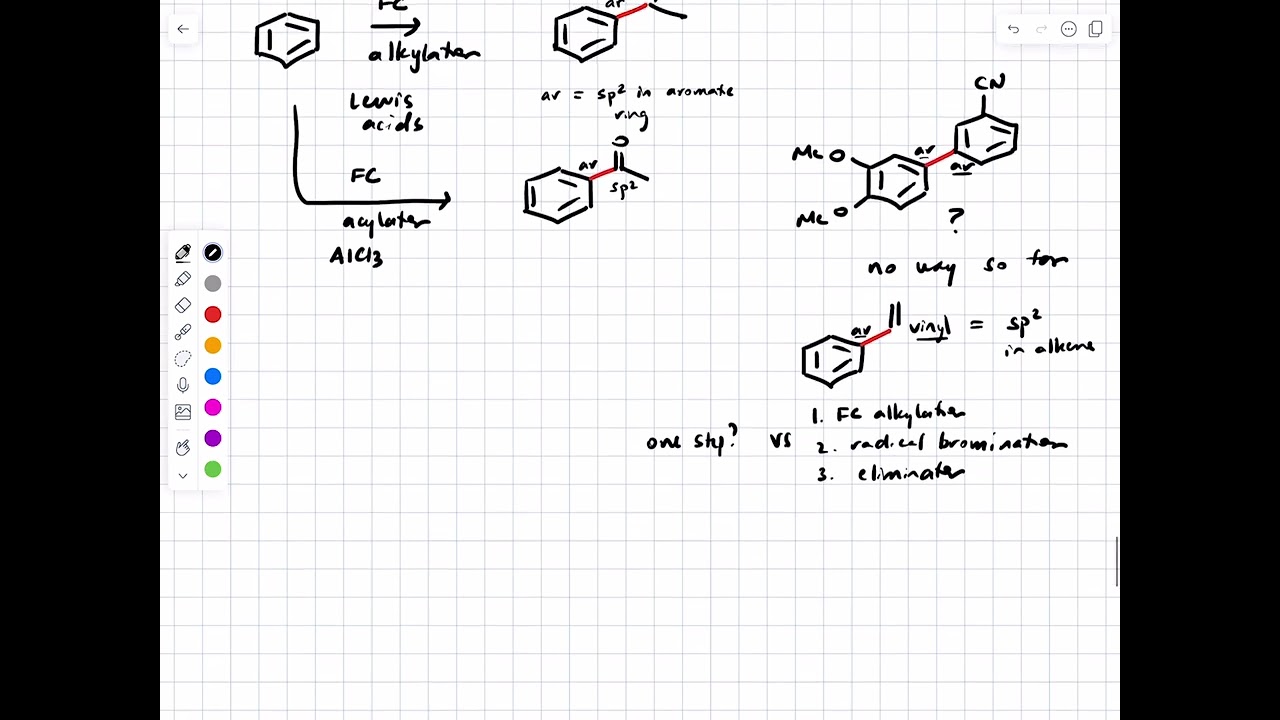 FC
alkylation
Lewis
acids
ar
ar = sp² in aromatic
ring
FC
acylation
AlCl3
O
ar
sp²
CN
MeO
MeO
ar
ar
?
no way so far
ar
vinyl = sp²
in alkene
one step? vs
1. FC alkylation
2. radical bromination
3. elimination